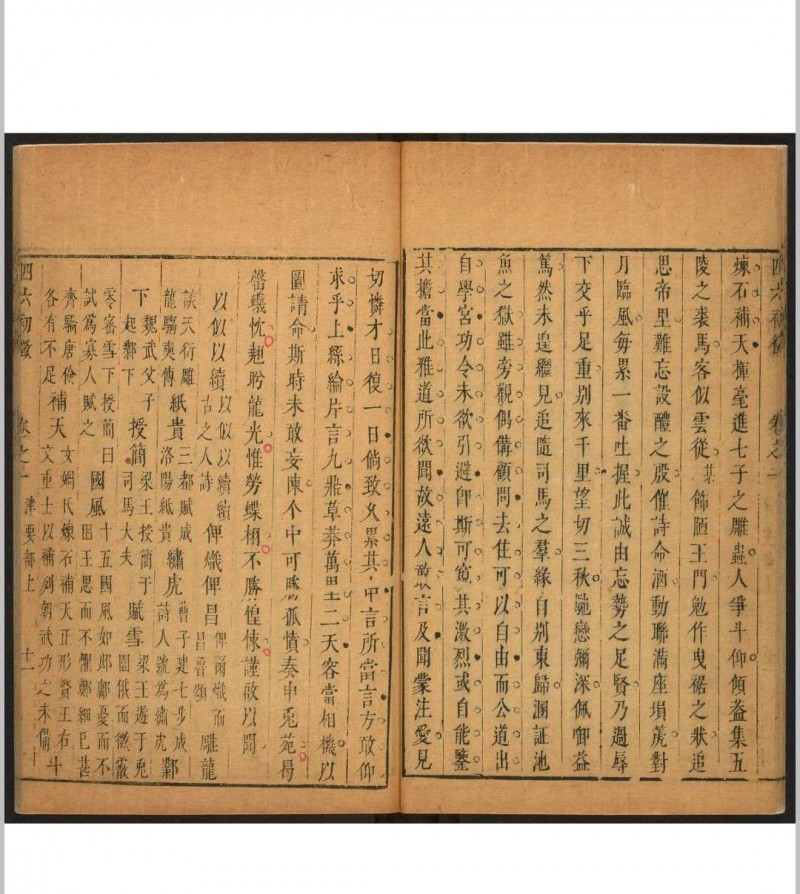 煉石補天揮毫進七子之雕蟲人爭斗仰傾蓋集五
陵之裘馬客似雲從某飾陋王門勉作曳裾之狀追
思帝里難忘設醴之殷催詩命酒動聯滿座塤箎對
月臨風每累一番吐握此誠由忘勢之足賢乃過辱
下交乎足重別來千里望切三秋馳戀彌深佩啣益
篤然未遑繼見追隨司馬之羣緣自別東歸溷証池
魚之獄雖旁觀偶備顧問去住可以自由而公道出
自學宮功令未欲引避卽斯可寬其激烈或自能鑒
其擔當此雅道所欲聞故遠人敢言及聞蒙注愛見
切憐才日復一日倘致久累其中言所當言方敢仰
求乎上絲綸片言九鼎草莽萬里二天容當相機以
圖請命斯時未敢妄陳个中可勝孤憤奏申兎苑曷
罄蟻忱翹聆龍光惟勞蝶栩不勝惶悚謹啟以聞
以似以續 以似以續續古之人詩 俾熾俾昌 俾爾熾而昌魯頌 雕龍
談天衍雕龍騶奭傳 紙貴 三都賦成洛陽紙貴 繡虎 曹子建七步成詩人號爲繡虎 鄴
下 魏武父子起鄴下 授簡 梁王授簡于司馬大夫 賦雪 梁王遊于兎園俄而微霰
零密雪下授簡曰試爲寡人賦之 國風 十五國風如邶鄘憂而不困王思而不懼鄭細已甚
齊騶唐儉各有不足 補天 女媧氏煉石補天正形賢王右文重士以補列朝武功之未備 斗
四六初徵 卷之一 津要部上 十一